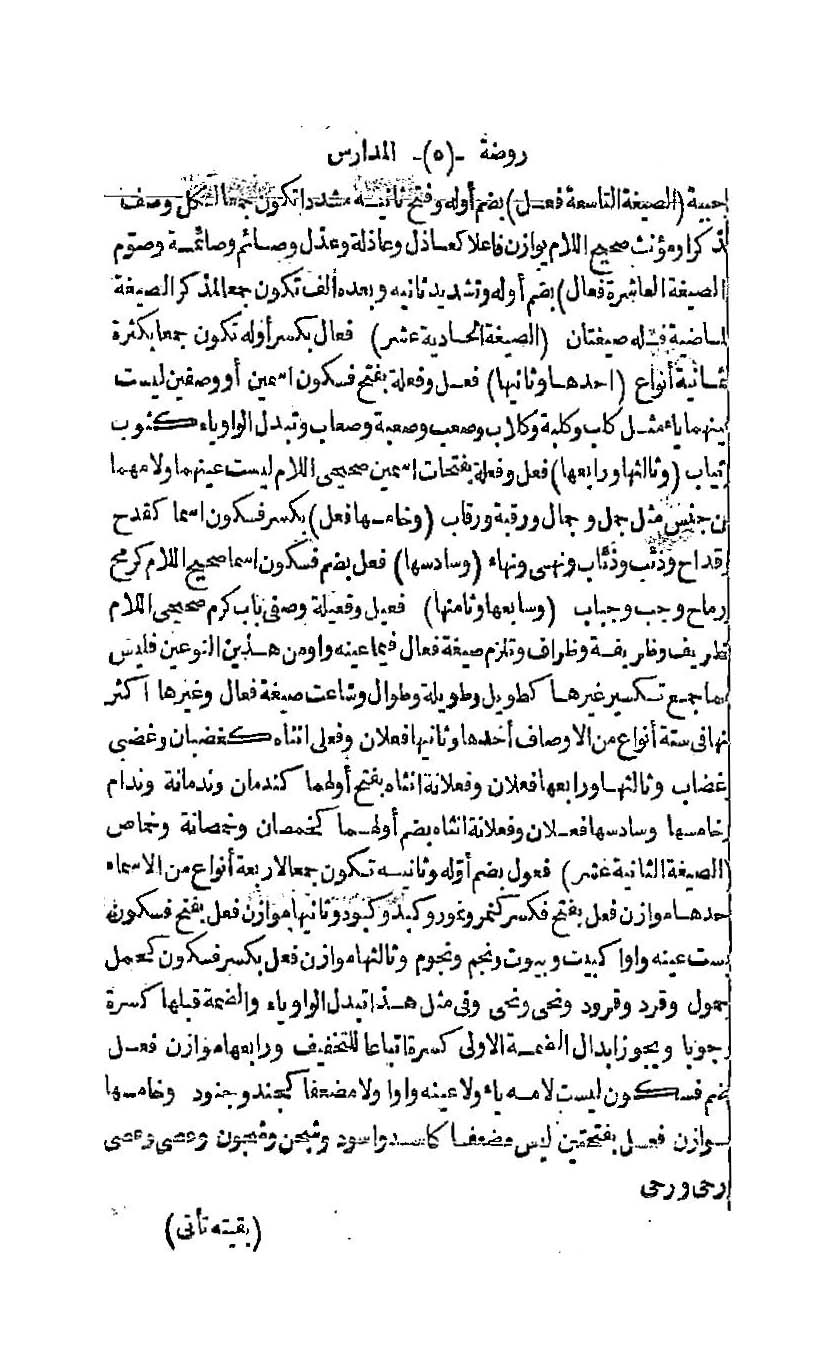 روضة -(٥)- المدارس
(الصيغة التاسعة فعل) بضم أوله وفتح ثانيه مشددا تكون جمعا لكل وصف
ومؤنث صحيح اللام يوازن فاعلا كعاذل وعاذلة وعذل وصائم وصائمة وصوّم
الصيغة العاشرة فعال) بضم أوله وتشديد ثانيه وبعده ألف تكون جمعا لمذكر الصيغة
الماضية فله صيغتان (الصيغة الحادية عشر) فعال بكسر أوله تكون جمعا بكثرة
ثمانية أنواع (احدها وثانيها) فعل وفعلة بفتح فسكون اسمين أو وصفين ليست
عينهما ياء مثل كاب وكلبة وكلاب وصعب وصعبة وصعاب وتبدل الواو ياء كثوب
وثياب (وثالثها ورابعها) فعل وفعلة بفتحات اسمين صحيحى اللام ليست عينهما ولامهما
من جنس مثل جمل وجمال ورقبة ورقاب (وخامسها فعل) بكسر فسكون اسما كقدح
وقداح وذئب وذئاب ونهى ونهاء (وسادسها) فعل بضم فسكون اسما صحيح اللام كرمح
ورماح وجب وجباب (وسابعها وثامنها) فعيل وفعيلة وصفى باب كرم صحيحى اللام
ظريف وظريفة وظراف وتلزم صيغة فعال فيما عينه واو من هذين النوعين فليس
لهما جمع تكسير غيرها كطويل وطويلة وطوال وشاعت صيغة فعال وغيرها أكثر
منها فى ستة أنواع من الاوصاف أحدها وثانيها فعلان وفعلى انثاه كغضبان وغضبى
وغضاب وثالثها ورابعها فعلان وفعلانة انثاه بفتح أولهما كندمان وندمانة وندام
وخامسها وسادسها فعلان وفعلانة انثاه بضم أولهما كخمصان وخمصانة وخماص
(الصيغة الثانية عشر) فعول بضم أوّله وثانيه تكون جمعا لاربعة أنواع من الاسماء
أحدها موازن فعل بفتح فكسر كنمر ونمور وكبد وكبود وثانيها موازن فعل بفتح فسكون
ليست عينه واوا كبيت وبيوت ونجم ونجوم وثالثها موازن فعل بكسر فسكون كحمل
وحمول وقرد وقرود ونحى ونحى وفى مثل هذا تبدل الواو ياء والضمة قبلها كسرة
وجوبا ويجوز ابدال الضمة الاولى كسرة اتباعا للتخفيف ورابعها موازن فعل
بضم فسكون ليست لامه ياء ولا عينه واوا ولا مضعفا كجند وجنود وخامسها
موازن فعل بفتحتين ليس مضعفا كاسد واسود وشجن وشجون وعصى وعصى
ورحى ورحى
(بقيته تأتى)